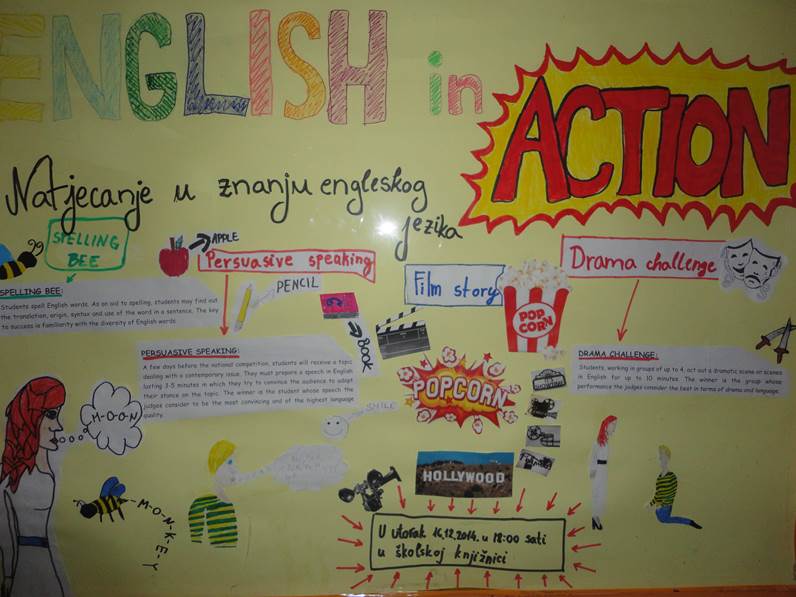 ENGLISH in
ACTION
Natjecanje u znanju engleskog
jezika
SPELLING
BEE
APPLE
Persuasive speaking
PENCIL
Film story
Drama challenge
POP
CORN
BOOK
SPELLING BEE:
Students spell English words. As an aid to spelling, students may find out
the translation, origin, syntax and use of the word in a sentence. The key
to success is familiarity with the diversity of English words.
PERSUASIVE SPEAKING:
A few days before the national competition, students will receive a topic
dealing with a contemporary issue. They must prepare a speech in English
lasting 3-5 minutes in which they try to convince the audience to adopt
their stance on the topic. The winner is the student whose speech the
judges consider to be the most convincing and of the highest language
quality.
DRAMA CHALLENGE:
Students, working in groups of up to 4, act out a dramatic scene or scenes
in English for up to 10 minutes. The winner is the group whose
performance the judges consider the best in terms of drama and language.
POPCORN
M-O-O-N
SMILE
HOLLYWOOD
M-O-N-K-E-Y
U utorak 16.12.2014. u 18:00 sati
u školskoj knjižnici